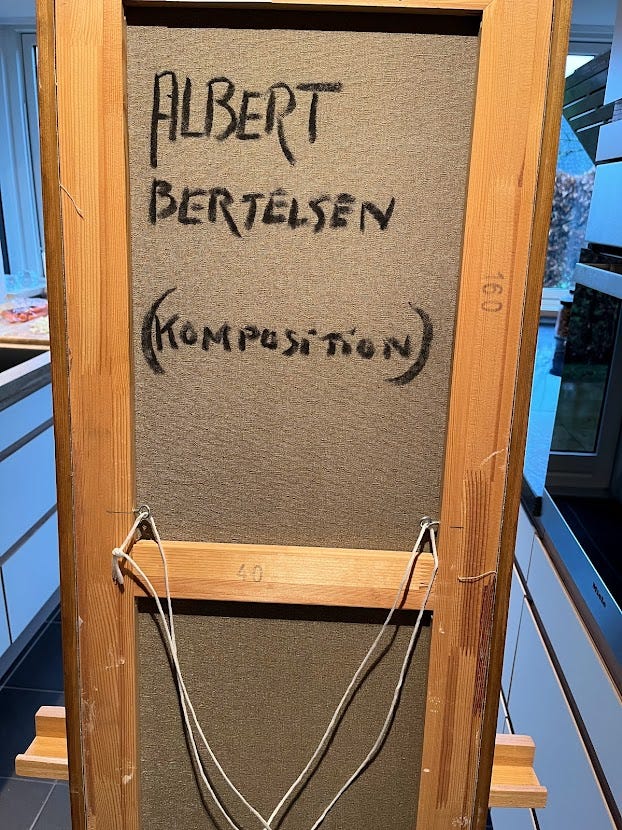 ALBERT
BERTELSEN
(KOMPOSITION)
160
40
Miele